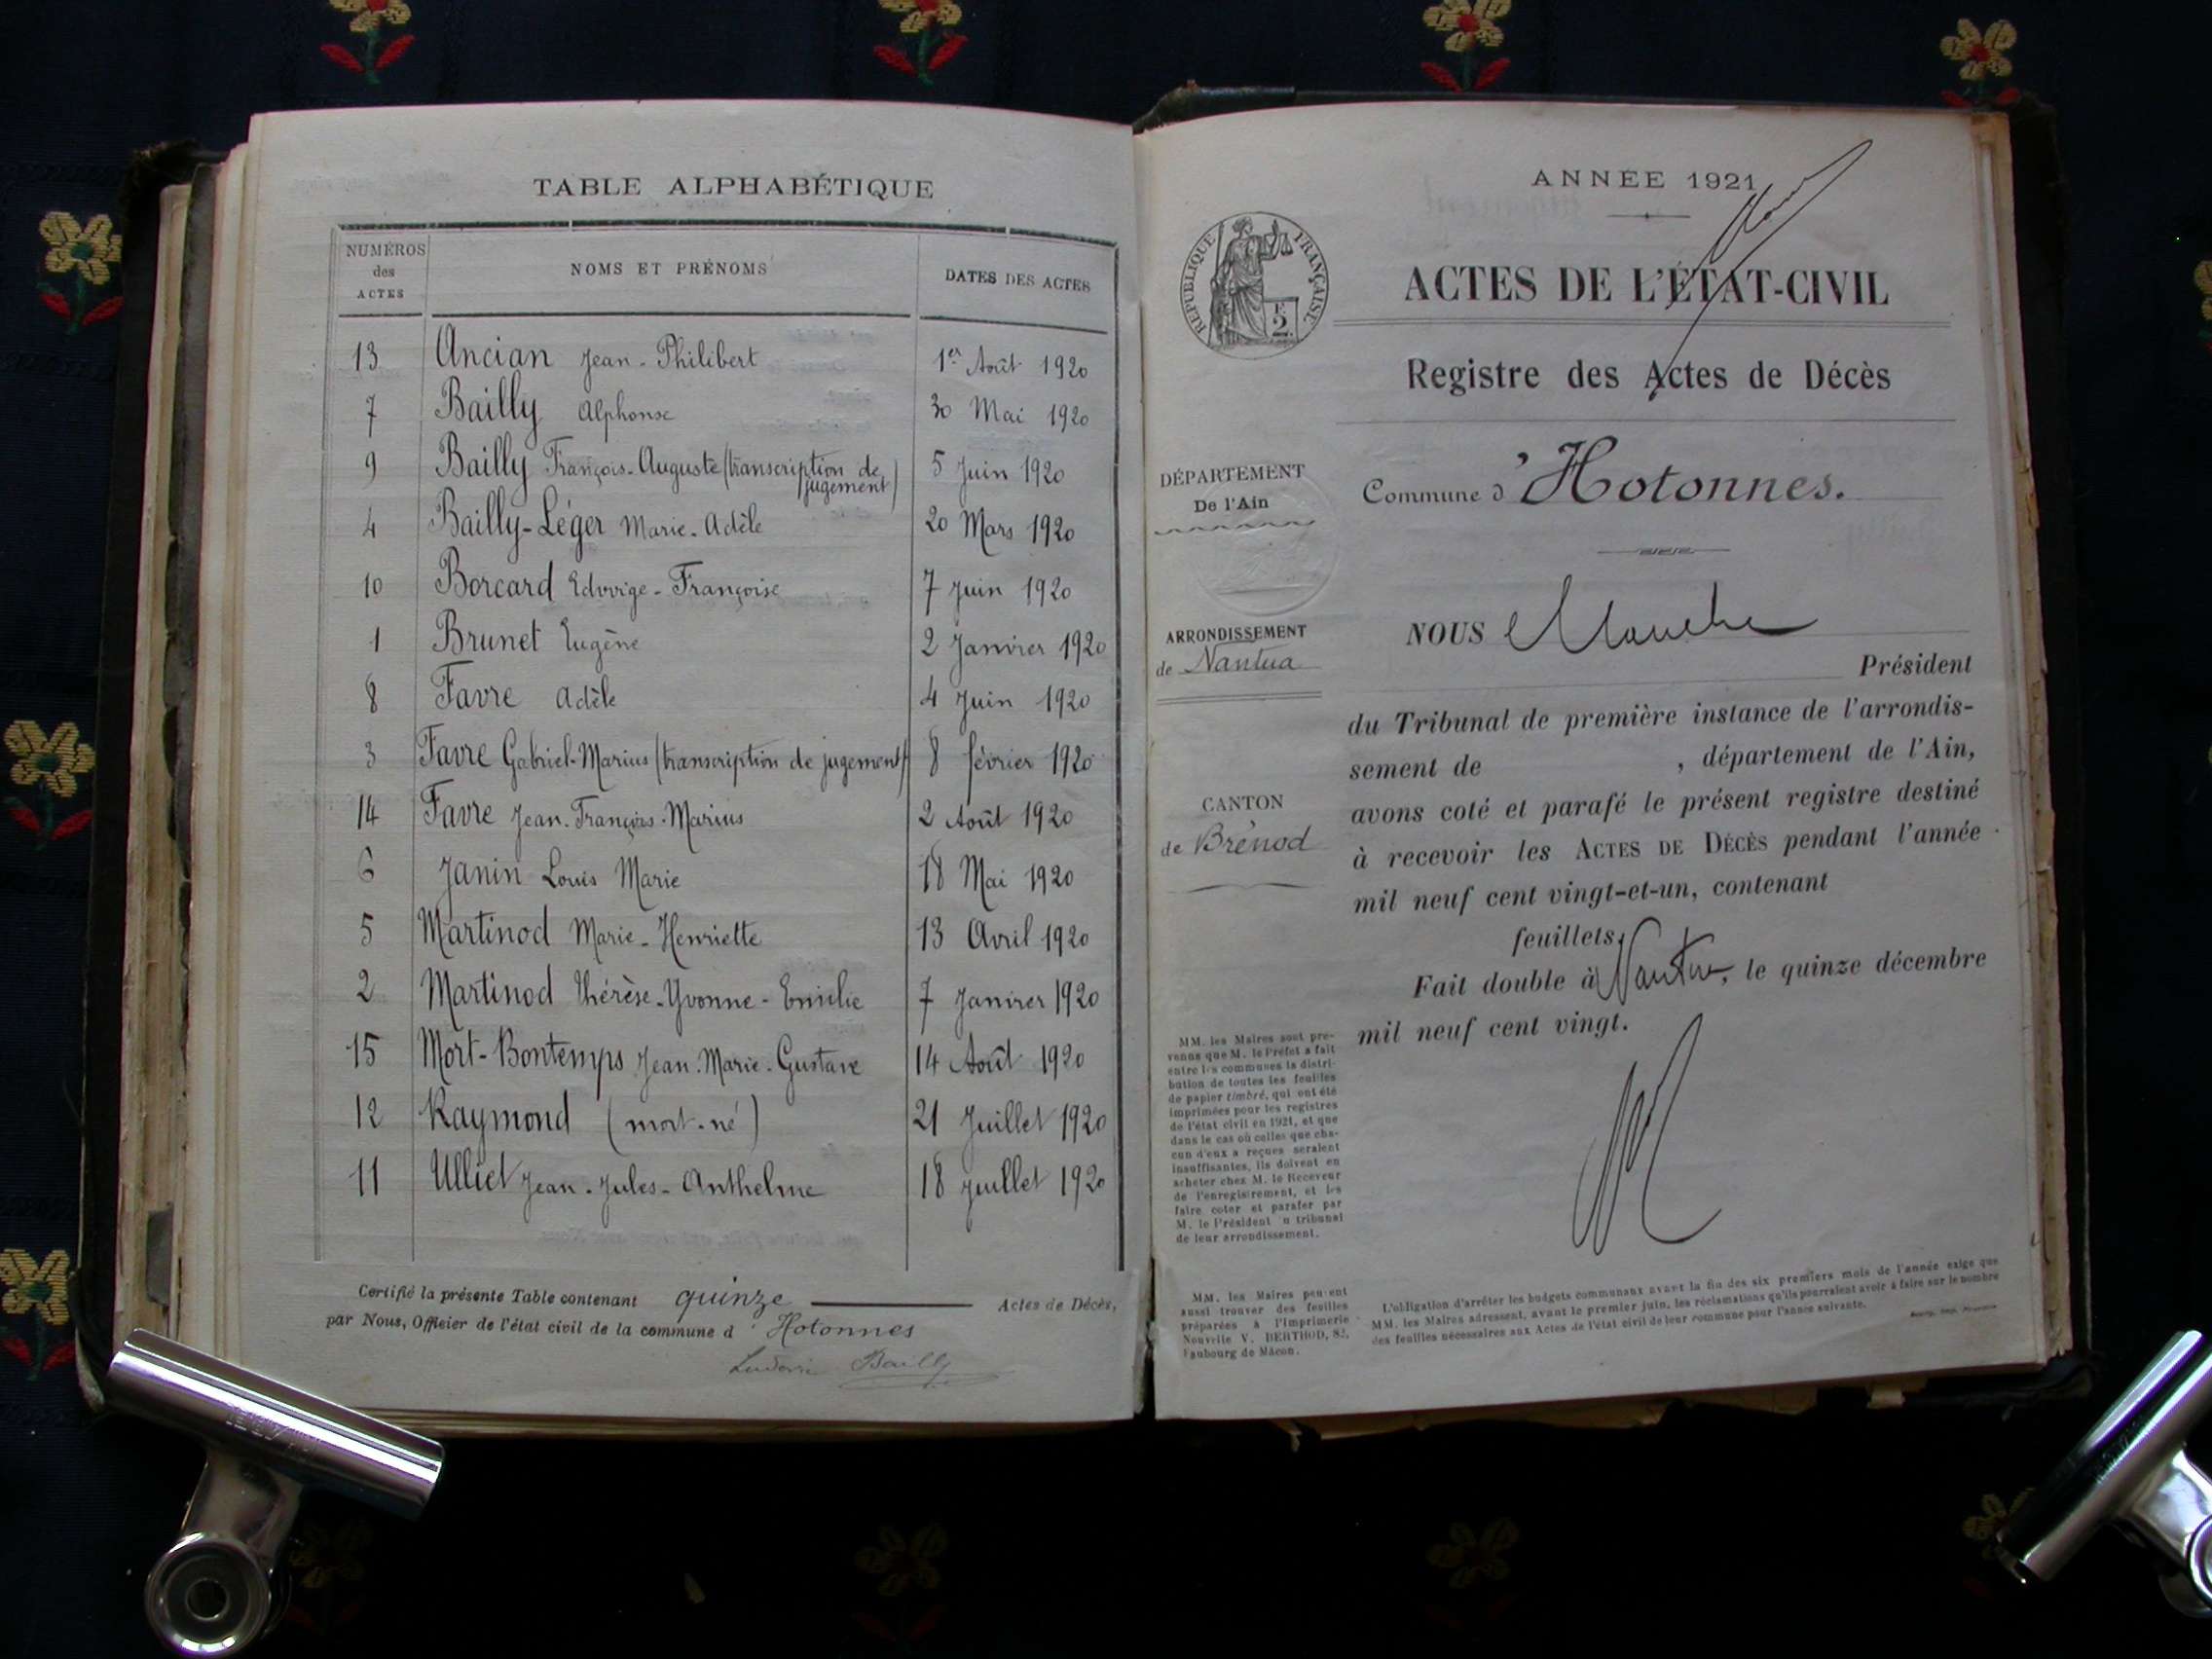 TABLE ALPHABÉTIQUE
NUMÉROS
des
ACTES
NOMS ET PRÉNOMS
DATES DES ACTES
13 Ancian Jean-Philibert 1er Août 1920
7 Bailly Alphonse 30 Mai 1920
9 Bailly François-Auguste (transcription de jugement) 5 Juin 1920
4 Bailly-Léger Marie-Adèle 20 Mars 1920
10 Borcard Edwige-Françoise 7 Juin 1920
1 Brunet Eugène 2 Janvier 1920
8 Favre Adèle 4 Juin 1920
3 Favre Gabriel-Marius (transcription de jugement) 8 février 1920
14 Favre Jean-François-Marius 2 Août 1920
6 Janin Louis Marie 18 Mai 1920
5 Martinod Marie-Henriette 13 Avril 1920
2 Martinod Thérèse-Yvonne-Emilie 7 Janvier 1920
15 Mort-Bontemps Jean-Marie-Gustave 14 Août 1920
12 Raymond (mort-né) 21 Juillet 1920
11 Ulliet Jean-Jules-Anthelme 18 Juillet 1920
Certifié la présente Table contenant quinze Actes de Décès,
par Nous, Officier de l'état civil de la commune d'Hotonnes
Ludovic Bailly
ANNÉE 1921
RÉPUBLIQUE FRANÇAISE
2
ACTES DE L'ÉTAT-CIVIL
Registre des Actes de Décès
Commune d'Hotonnes.
DÉPARTEMENT
De l'Ain
ARRONDISSEMENT
de Nantua
CANTON
de Brénod
NOUS
Président
du Tribunal de première instance de l'arrondis-
sement de , département de l'Ain,
avons coté et parafé le présent registre destiné
à recevoir les ACTES DE DÉCÈS pendant l'année
mil neuf cent vingt-et-un, contenant
feuillets.
Fait double à Nantua, le quinze décembre
mil neuf cent vingt.
MM. les Maires sont pré-
venus que M. le Préfet a fait
entre les communes la distri-
bution de toutes les feuilles
de papier timbré, qui ont été
imprimées pour les registres
de l'état civil en 1921, et que
dans le cas où celles que cha-
cun d'eux a reçues seraient
insuffisantes, ils doivent en
acheter chez M. le Receveur
de l'enregistrement, et les
faire coter et parafer par
M. le Président u tribunal
de leur arrondissement.
MM. les Maires peuvent
aussi trouver des feuilles
préparées à l'Imprimerie
Nouvelle V. BERTHOD, 82,
Faubourg de Mâcon.
L'obligation d'arrêter les budgets communaux avant la fin des six premiers mois de l'année exige que
MM. les Maires adressent, avant le premier juin, les réclamations qu'ils pourraient avoir à faire sur le nombre
des feuilles nécessaires aux Actes de l'état civil de leur commune pour l'année suivante.